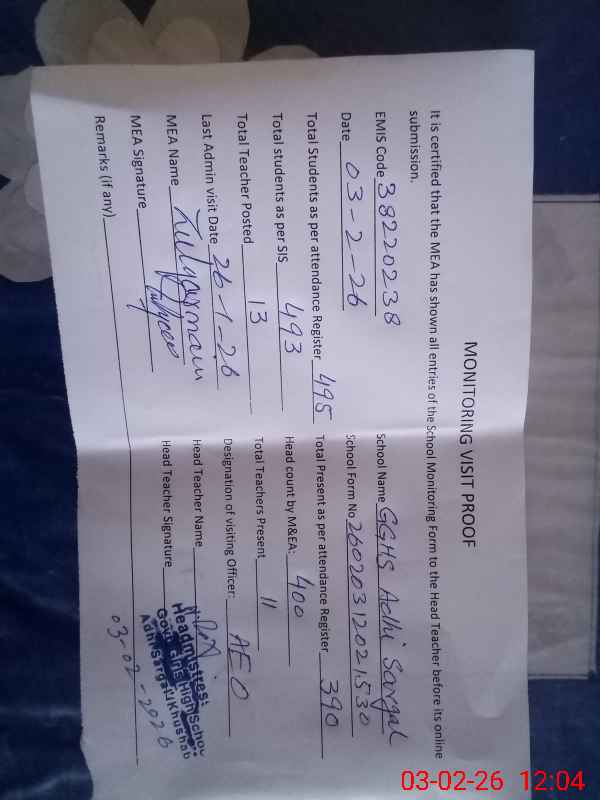 MONITORING VISIT PROOF
It is certified that the MEA has shown all entries of the School Monitoring Form to the Head Teacher before its online
submission.
EMIS Code 38220238 School Name GGHS Adhi Sargal
Date 03-2-26 School Form No 26020312021530
Total Students as per attendance Register 495 Total Present as per attendance Register 390
Total students as per SIS 493 Head count by M&EA: 400
Total Teacher Posted 13 Total Teachers Present 11
Last Admin visit Date 26-1-26 Designation of visiting Officer: AEO
MEA Name Head Teacher Name
MEA Signature Head Teacher Signature
Headmistress
Govt. Girls High School
Adhi Sargal Khushab
03-02-2026
Remarks (if any)
03-02-26 12:04